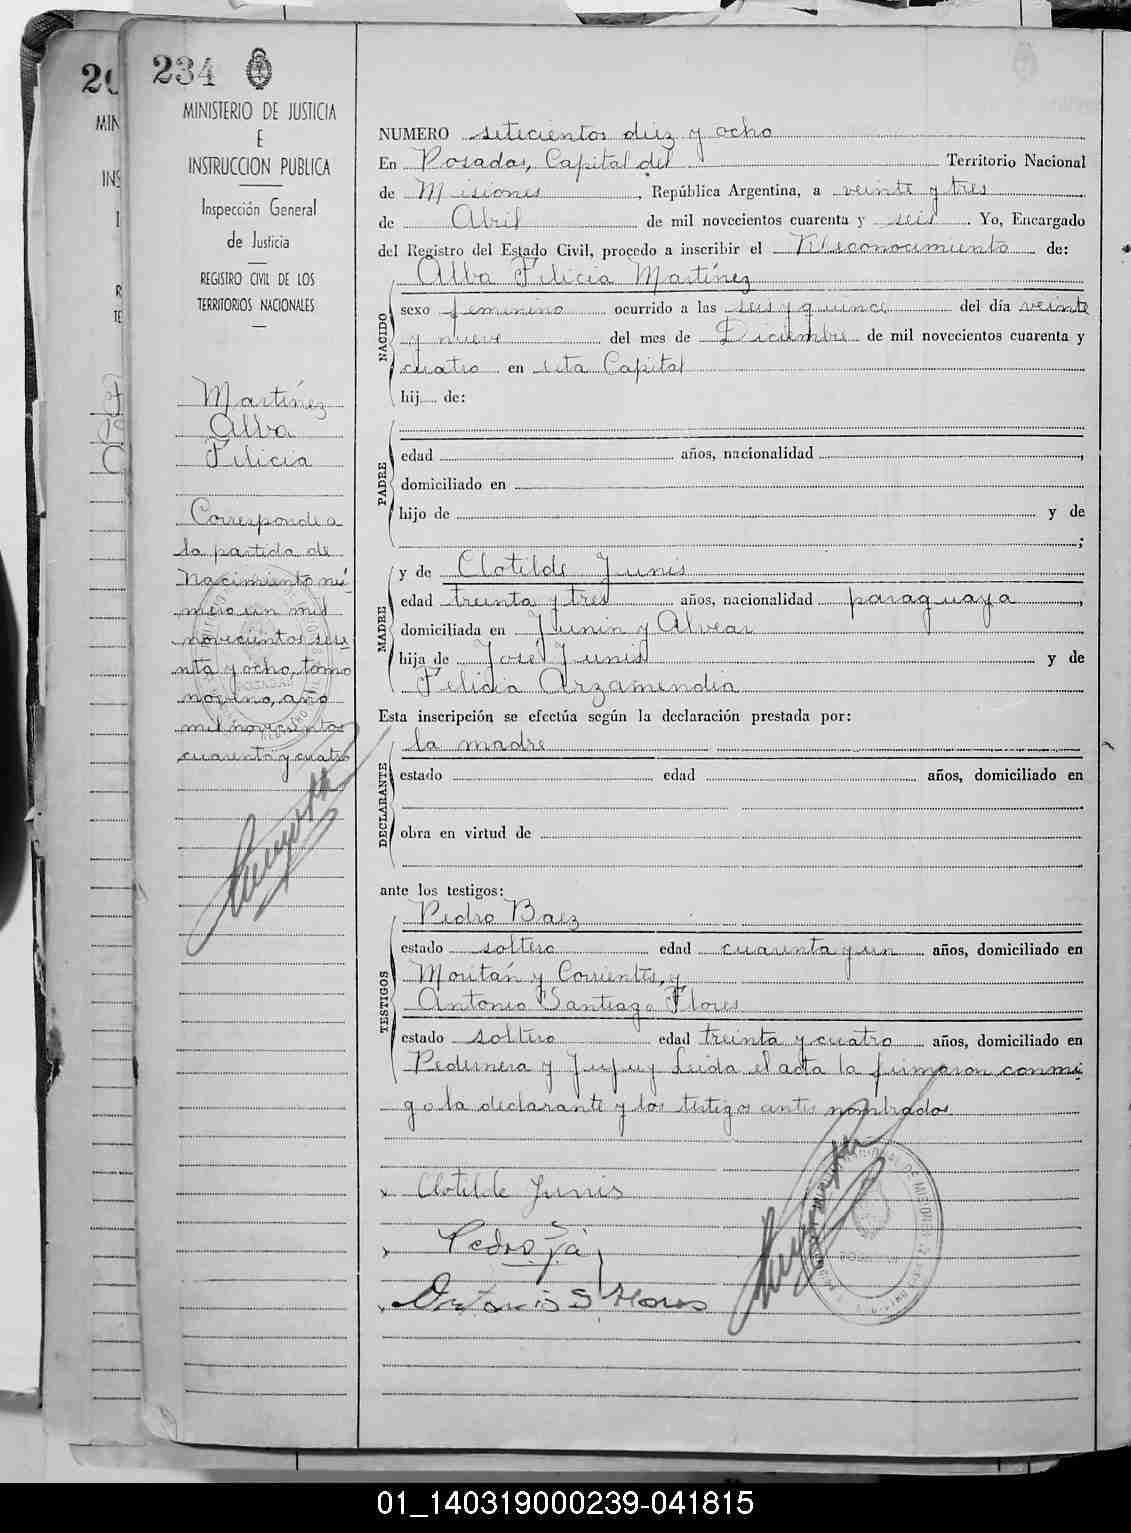 234
MINISTERIO DE JUSTICIA
E
INSTRUCCION PUBLICA
Inspección General
de Justicia
REGISTRO CIVIL DE LOS
TERRITORIOS NACIONALES
Martínez
Alba
Felicia
Corresponde a
la partida de
Nacimiento nú-
mero un mil
novecientos sese
nta y ocho, tomo
noveno, año
mil novecientos
cuarenta y cuatro
NUMERO setecientos diez y ocho
En Posadas, Capital del Territorio Nacional
de Misiones, República Argentina, a veinte y tres
de Abril de mil novecientos cuarenta y seis. Yo, Encargado
del Registro del Estado Civil, procedo a inscribir el Reconocimiento de:
NACIDO
Alba Felicia Martínez
sexo femenino ocurrido a las seis y quince del día veinte
y nueve del mes de Diciembre de mil novecientos cuarenta y
cuatro en esta Capital
hij de:
PADRE
edad años, nacionalidad ,
domiciliado en
hijo de y de
;
MADRE
y de Clotilde Junis
edad treinta y tres años, nacionalidad paraguaya,
domiciliada en Junin y Alvear
hija de José Junis y de
Felicia Arzamendia
Esta inscripción se efectúa según la declaración prestada por:
DECLARANTE
la madre
estado edad años, domiciliado en
obra en virtud de
ante los testigos:
TESTIGOS
Pedro Baez
estado soltero edad cuarenta y un años, domiciliado en
Moritán y Corrientes, y
Antonio Santiago Flores
estado soltero edad treinta y cuatro años, domiciliado en
Pedernera y Jujuy Leida el acta la firmaron conmi
go la declarante y los testigos antes nombrados
x Clotilde Junis
Pedro
Antonio S Flores
01_140319000239-041815